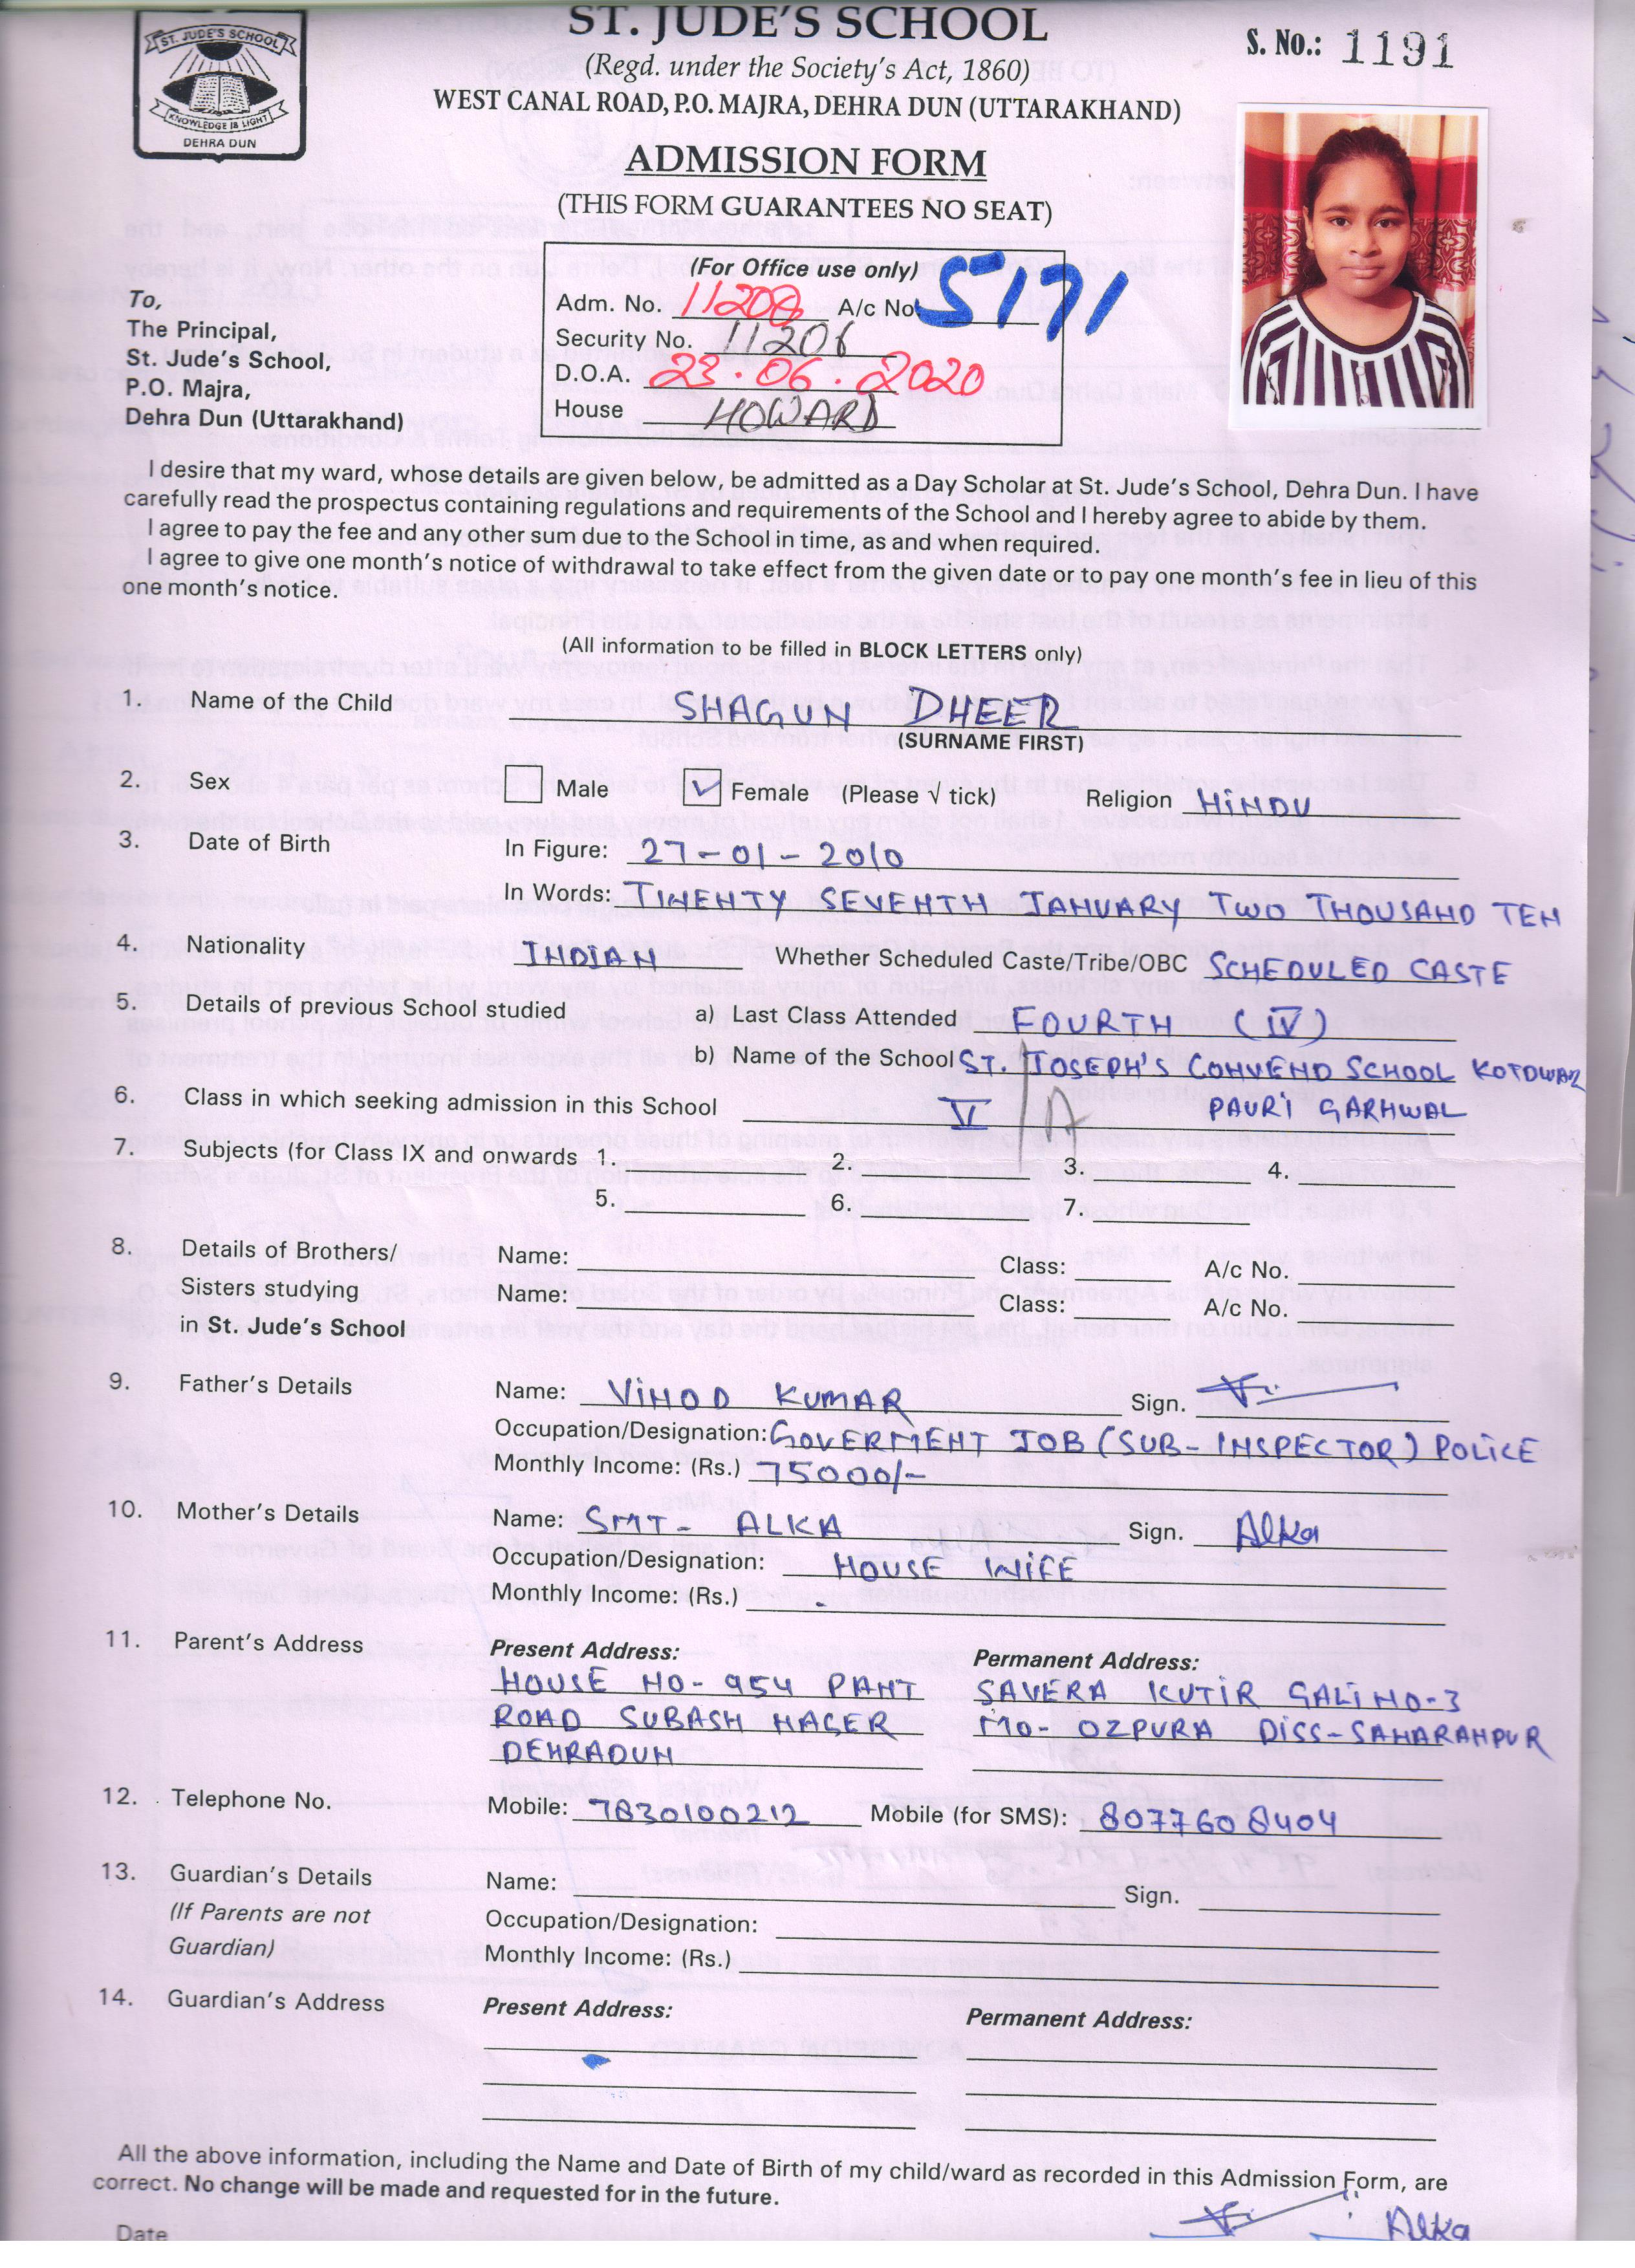 ST. JUDE'S SCHOOL
KNOWLEDGE IS LIGHT
DEHRA DUN
ST. JUDE'S SCHOOL
(Regd. under the Society's Act, 1860)
WEST CANAL ROAD, P.O. MAJRA, DEHRA DUN (UTTARAKHAND)
S. No.: 1191
ADMISSION FORM
(THIS FORM GUARANTEES NO SEAT)
To,
The Principal,
St. Jude's School,
P.O. Majra,
Dehra Dun (Uttarakhand)
(For Office use only)
Adm. No. A/c No. 5171
Security No. 11206
D.O.A. 23.06.2020
House HOWARD
I desire that my ward, whose details are given below, be admitted as a Day Scholar at St. Jude's School, Dehra Dun. I have
carefully read the prospectus containing regulations and requirements of the School and I hereby agree to abide by them.
I agree to pay the fee and any other sum due to the School in time, as and when required.
I agree to give one month's notice of withdrawal to take effect from the given date or to pay one month's fee in lieu of this
one month's notice.
(All information to be filled in BLOCK LETTERS only)
1. Name of the Child SHAGUN DHEER
(SURNAME FIRST)
2. Sex Male ✓ Female (Please √ tick) Religion HINDU
3. Date of Birth In Figure: 27-01-2010
In Words: TWENTY SEVENTH JANUARY TWO THOUSAND TEN
4. Nationality INDIAN Whether Scheduled Caste/Tribe/OBC SCHEDULED CASTE
5. Details of previous School studied a) Last Class Attended FOURTH (IV)
b) Name of the School ST. JOSEPH'S CONVEND SCHOOL KOTDWAR
PAURI GARHWAL
6. Class in which seeking admission in this School V A
7. Subjects (for Class IX and onwards 1. 2. 3. 4.
5. 6. 7.
8. Details of Brothers/ Name: Class: A/c No.
Sisters studying Name: Class: A/c No.
in St. Jude's School
9. Father's Details Name: VINOD KUMAR Sign.
Occupation/Designation: GOVERMENT JOB (SUB-INSPECTOR) POLICE
Monthly Income: (Rs.) 75000/-
10. Mother's Details Name: SMT- ALKA Sign. Alka
Occupation/Designation: HOUSE WIFE
Monthly Income: (Rs.) -
11. Parent's Address Present Address: Permanent Address:
HOUSE NO-954 PANT SAVERA KUTIR GALI NO-3
ROAD SUBASH NAGER MO- OZPURA DISS-SAHARANPUR
DEHRADUN
12. Telephone No. Mobile: 7830100212 Mobile (for SMS): 8077608404
13. Guardian's Details Name: Sign.
(If Parents are not Occupation/Designation:
Guardian) Monthly Income: (Rs.)
14. Guardian's Address Present Address: Permanent Address:
All the above information, including the Name and Date of Birth of my child/ward as recorded in this Admission Form, are
correct. No change will be made and requested for in the future.
Date Alka